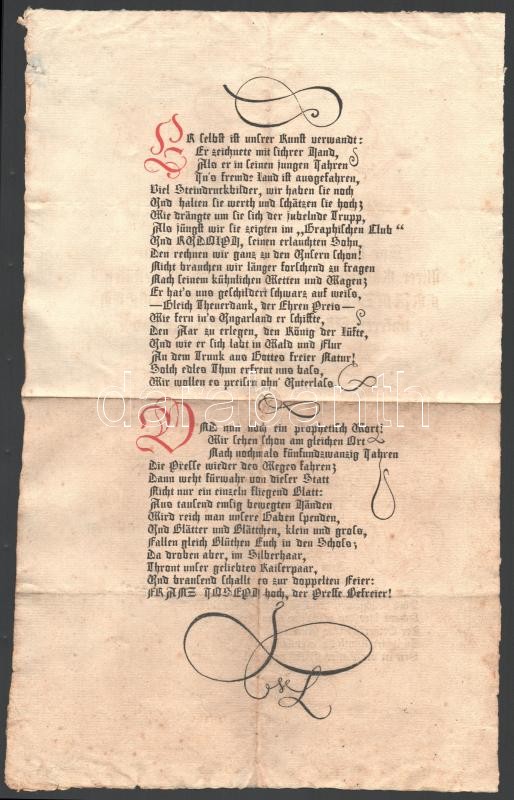 ER selbst ist unsrer Kunst verwandt:
Er zeichnete mit sichrer Hand,
Als er in seinen jungen Jahren
In's fremde Land ist ausgefahren,
Viel Steindruckbilder, wir haben sie noch
Und halten sie werth und schätzen sie hoch;
Wie drängte um sie sich der jubelnde Trupp,
Als jüngst wir sie zeigten im „Graphischen Club“
Und RUDOLPH, seinen erlauchten Sohn,
Den rechnen wir ganz zu den Unsern schon!
Nicht brauchen wir länger forschend zu fragen
Nach seinem kühnlichen Wetten und Wagen;
Er hat's uns geschildert schwarz auf weiss,
—Gleich Theuerdank, der Ehren Preis—
Wie fern in's Ungarland er schiffte,
Den Aar zu erlegen, den König der Lüfte,
Und wie er sich labt in Wald und Flur
An dem Trunk aus Gottes freier Natur!
Solch edles Thun erfreut uns bass,
Wir wollen es preisen ohn' Unterlass
DAS nun noch ein prophetisch Wort:
Wir sehen schon am gleichen Ort
Nach nochmals fünfundzwanzig Jahren
Die Presse wieder des Weges fahren;
Dann weht fürwahr von dieser Statt
Nicht nur ein einzeln fliegend Blatt:
Aus tausend emsig bewegten Händen
Wird reich man unsere Gaben spenden,
Und Blätter und Blättchen, klein und gross,
Fallen gleich Blüthen Euch in den Schoss;
Da droben aber, im Silberhaar,
Thront unser geliebtes Kaiserpaar,
Und brausend schallt es zur doppelten Feier:
FRANZ JOSEPH hoch, der Presse Befreier!
darabanth